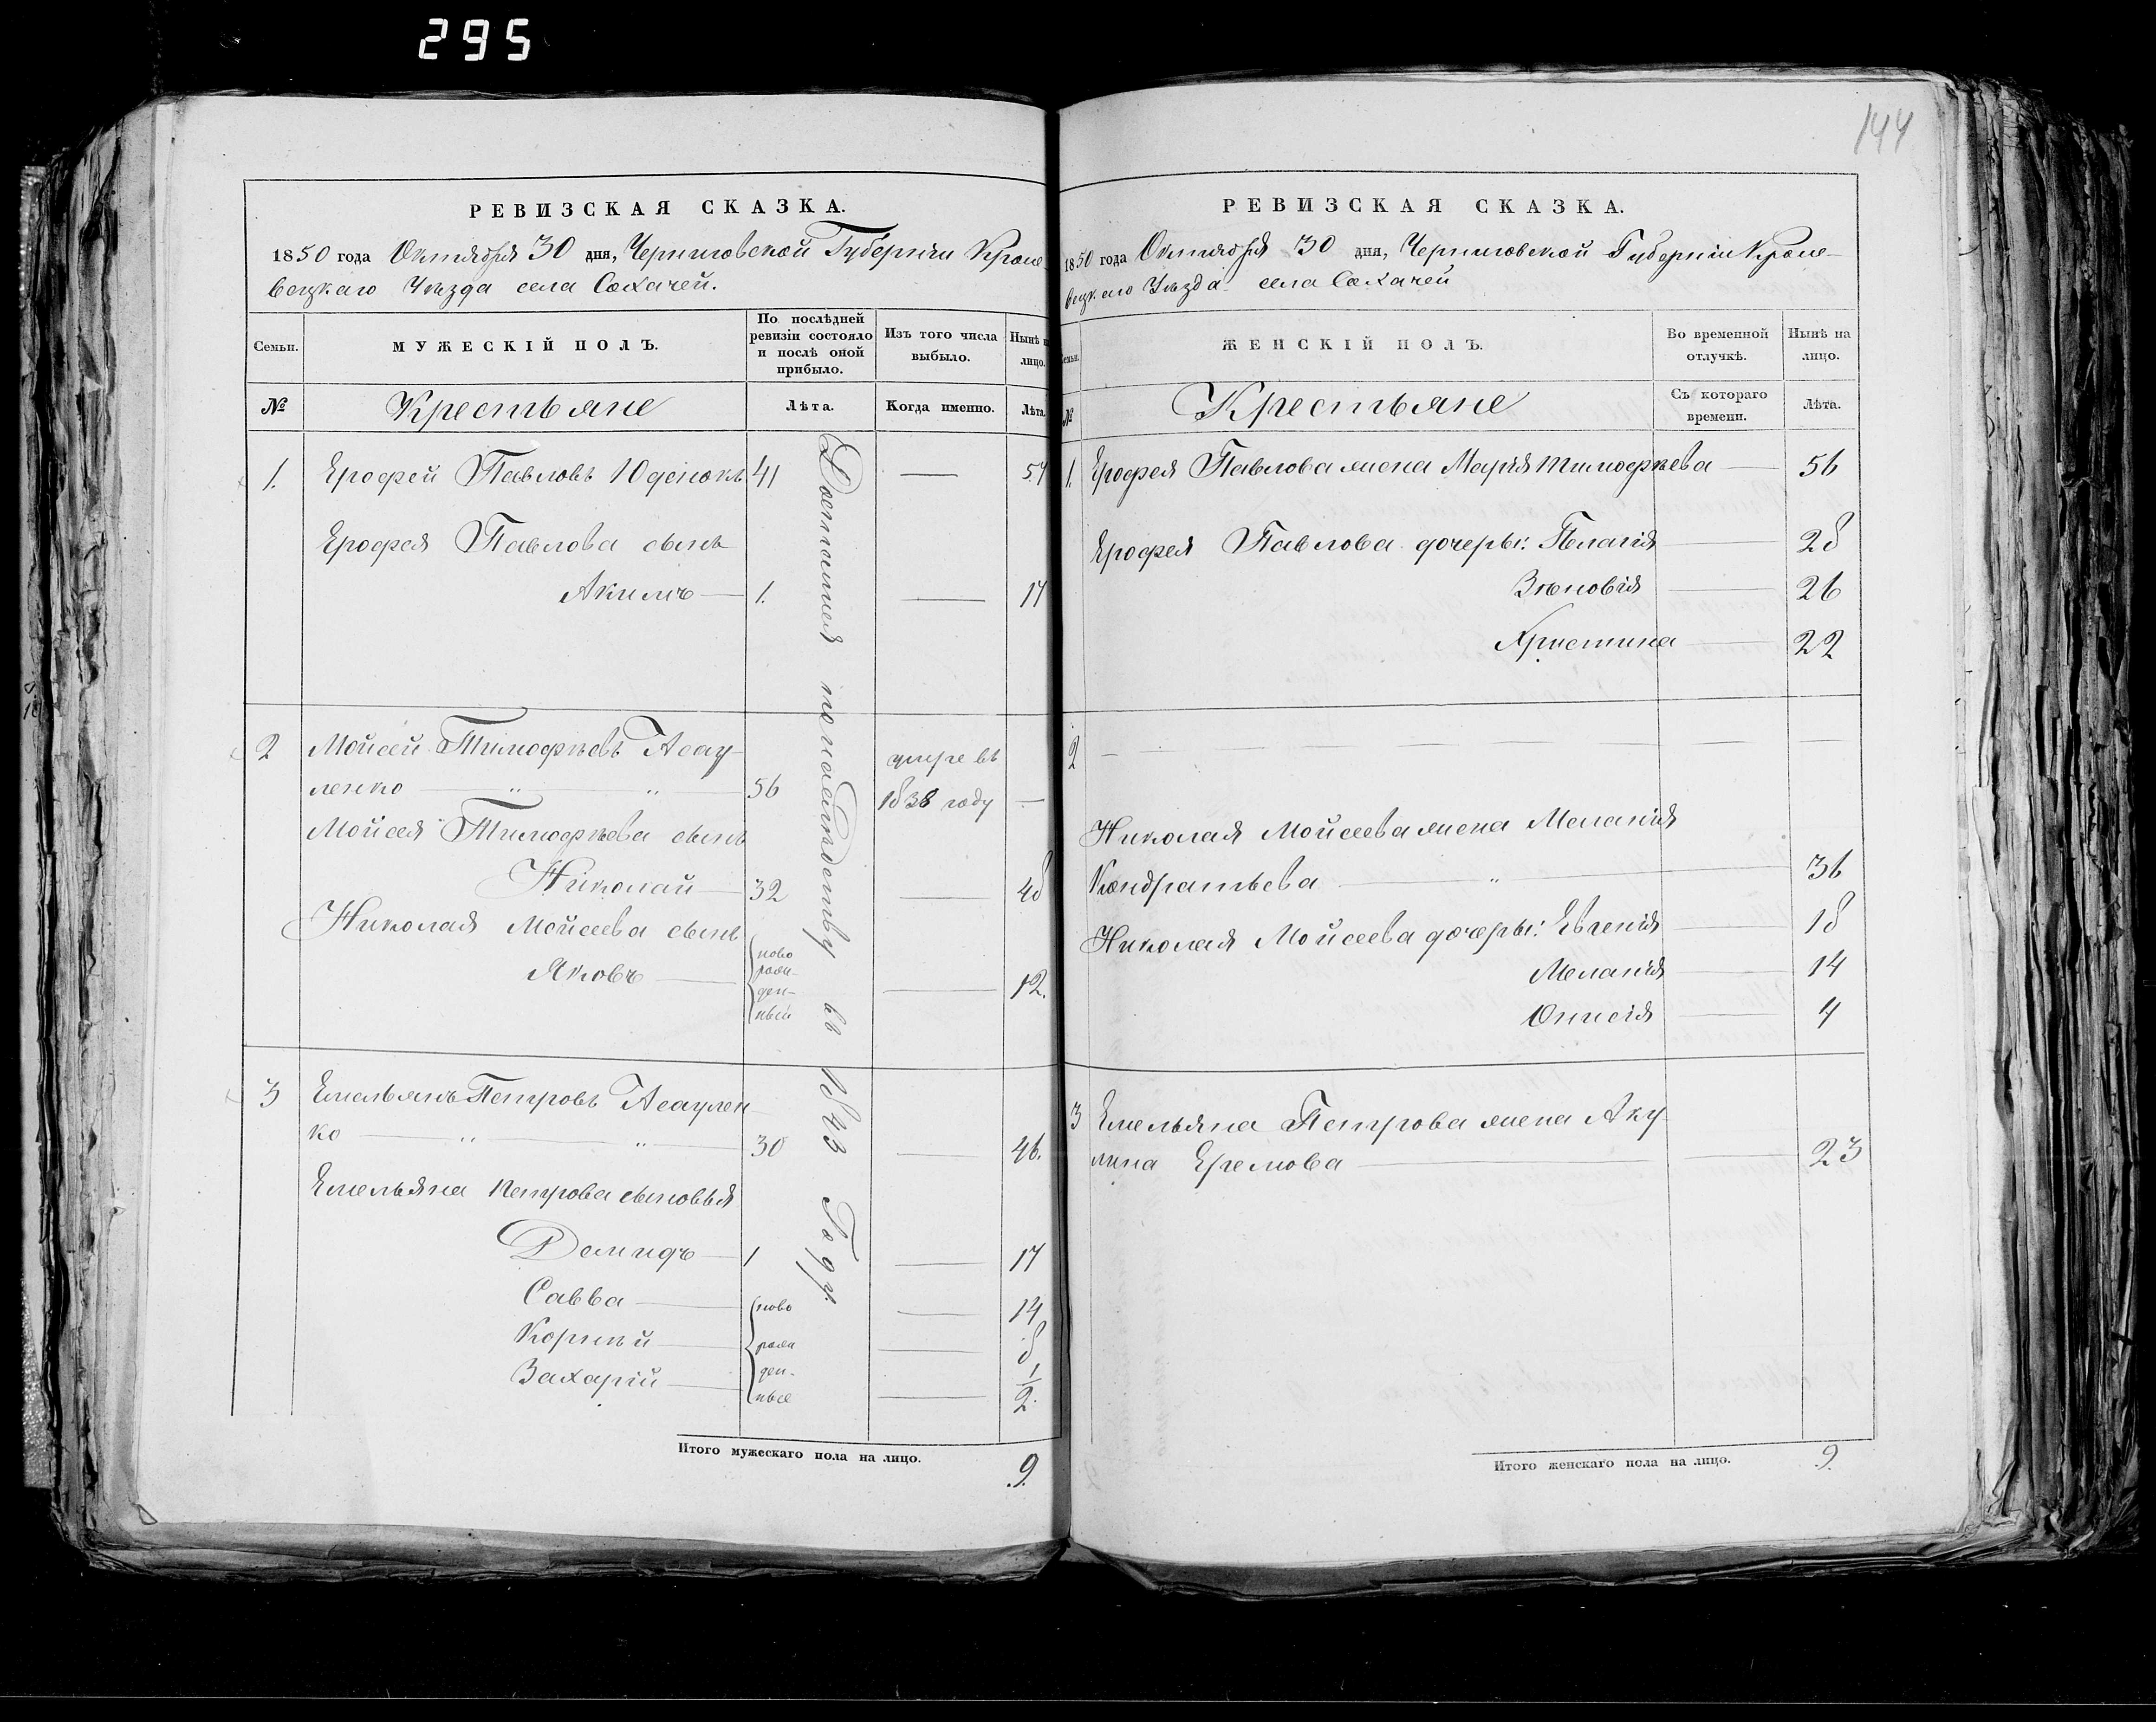 295
144
РЕВИЗСКАЯ СКАЗКА.
1850 года Октября 30 дня, Черниговской Губерніи Кроле-
вецкаго Уѣзда села Сохачей.
Семьи.
МУЖЕСКІЙ ПОЛЪ.
По послѣдней ревизіи состояло и послѣ оной прибыло.
Изъ того числа выбыло.
Нынѣ на лицо.
№
Крестьяне
Лѣта.
Когда именно.
Лѣта.
1. Ерофей Павловъ Юденокъ 41 — 57
Ерофея Павлова сынъ
Акимъ — 1. — 17
2 Мойсей Тимофѣевъ Асау-
ленко — „ — „ — 56 умре въ 1838 году —
Мойсея Тимофѣева сынъ
Николай — 32 — 48
Николая Мойсеева сынъ
Яковъ — ново рож- ден- ный — 12.
3 Емельянъ Петровъ Асаулен-
ко — „ — „ 30 — 46.
Емельяна Петрова сыновья
Демидъ — 1 — 17
Савва — ново — 14
Корнѣй — рож — 8
Захарій — ден- ные — 1/2.
Достался по наслѣдству въ 1843 Году.
Итого мужескаго пола на лицо. 9.
РЕВИЗСКАЯ СКАЗКА.
1850 года Октября 30 дня, Черниговской Губерніи Кроле-
вецкаго Уѣзда села Сохачей
Семьи.
ЖЕНСКІЙ ПОЛЪ.
Во временной отлучкѣ.
Нынѣ на лицо.
№
Крестьяне
Съ котораго времени.
Лѣта.
1. Ерофея Павлова жена Марія Тимофѣева — 56
Ерофея Павлова дочеры: Пелагія — 28
Зѣновія — 26
Христина — 22
2 — — — — — —
Николая Мойсеева жена Меланія
Кондратьева — „ — 36
Николая Мойсеева дочеры: Евгенія — 18
Меланія — 14
Онисія — 4
3 Емельяна Петрова жена Аку-
лина Еремова — — 23
Итого женскаго пола на лицо. 9.